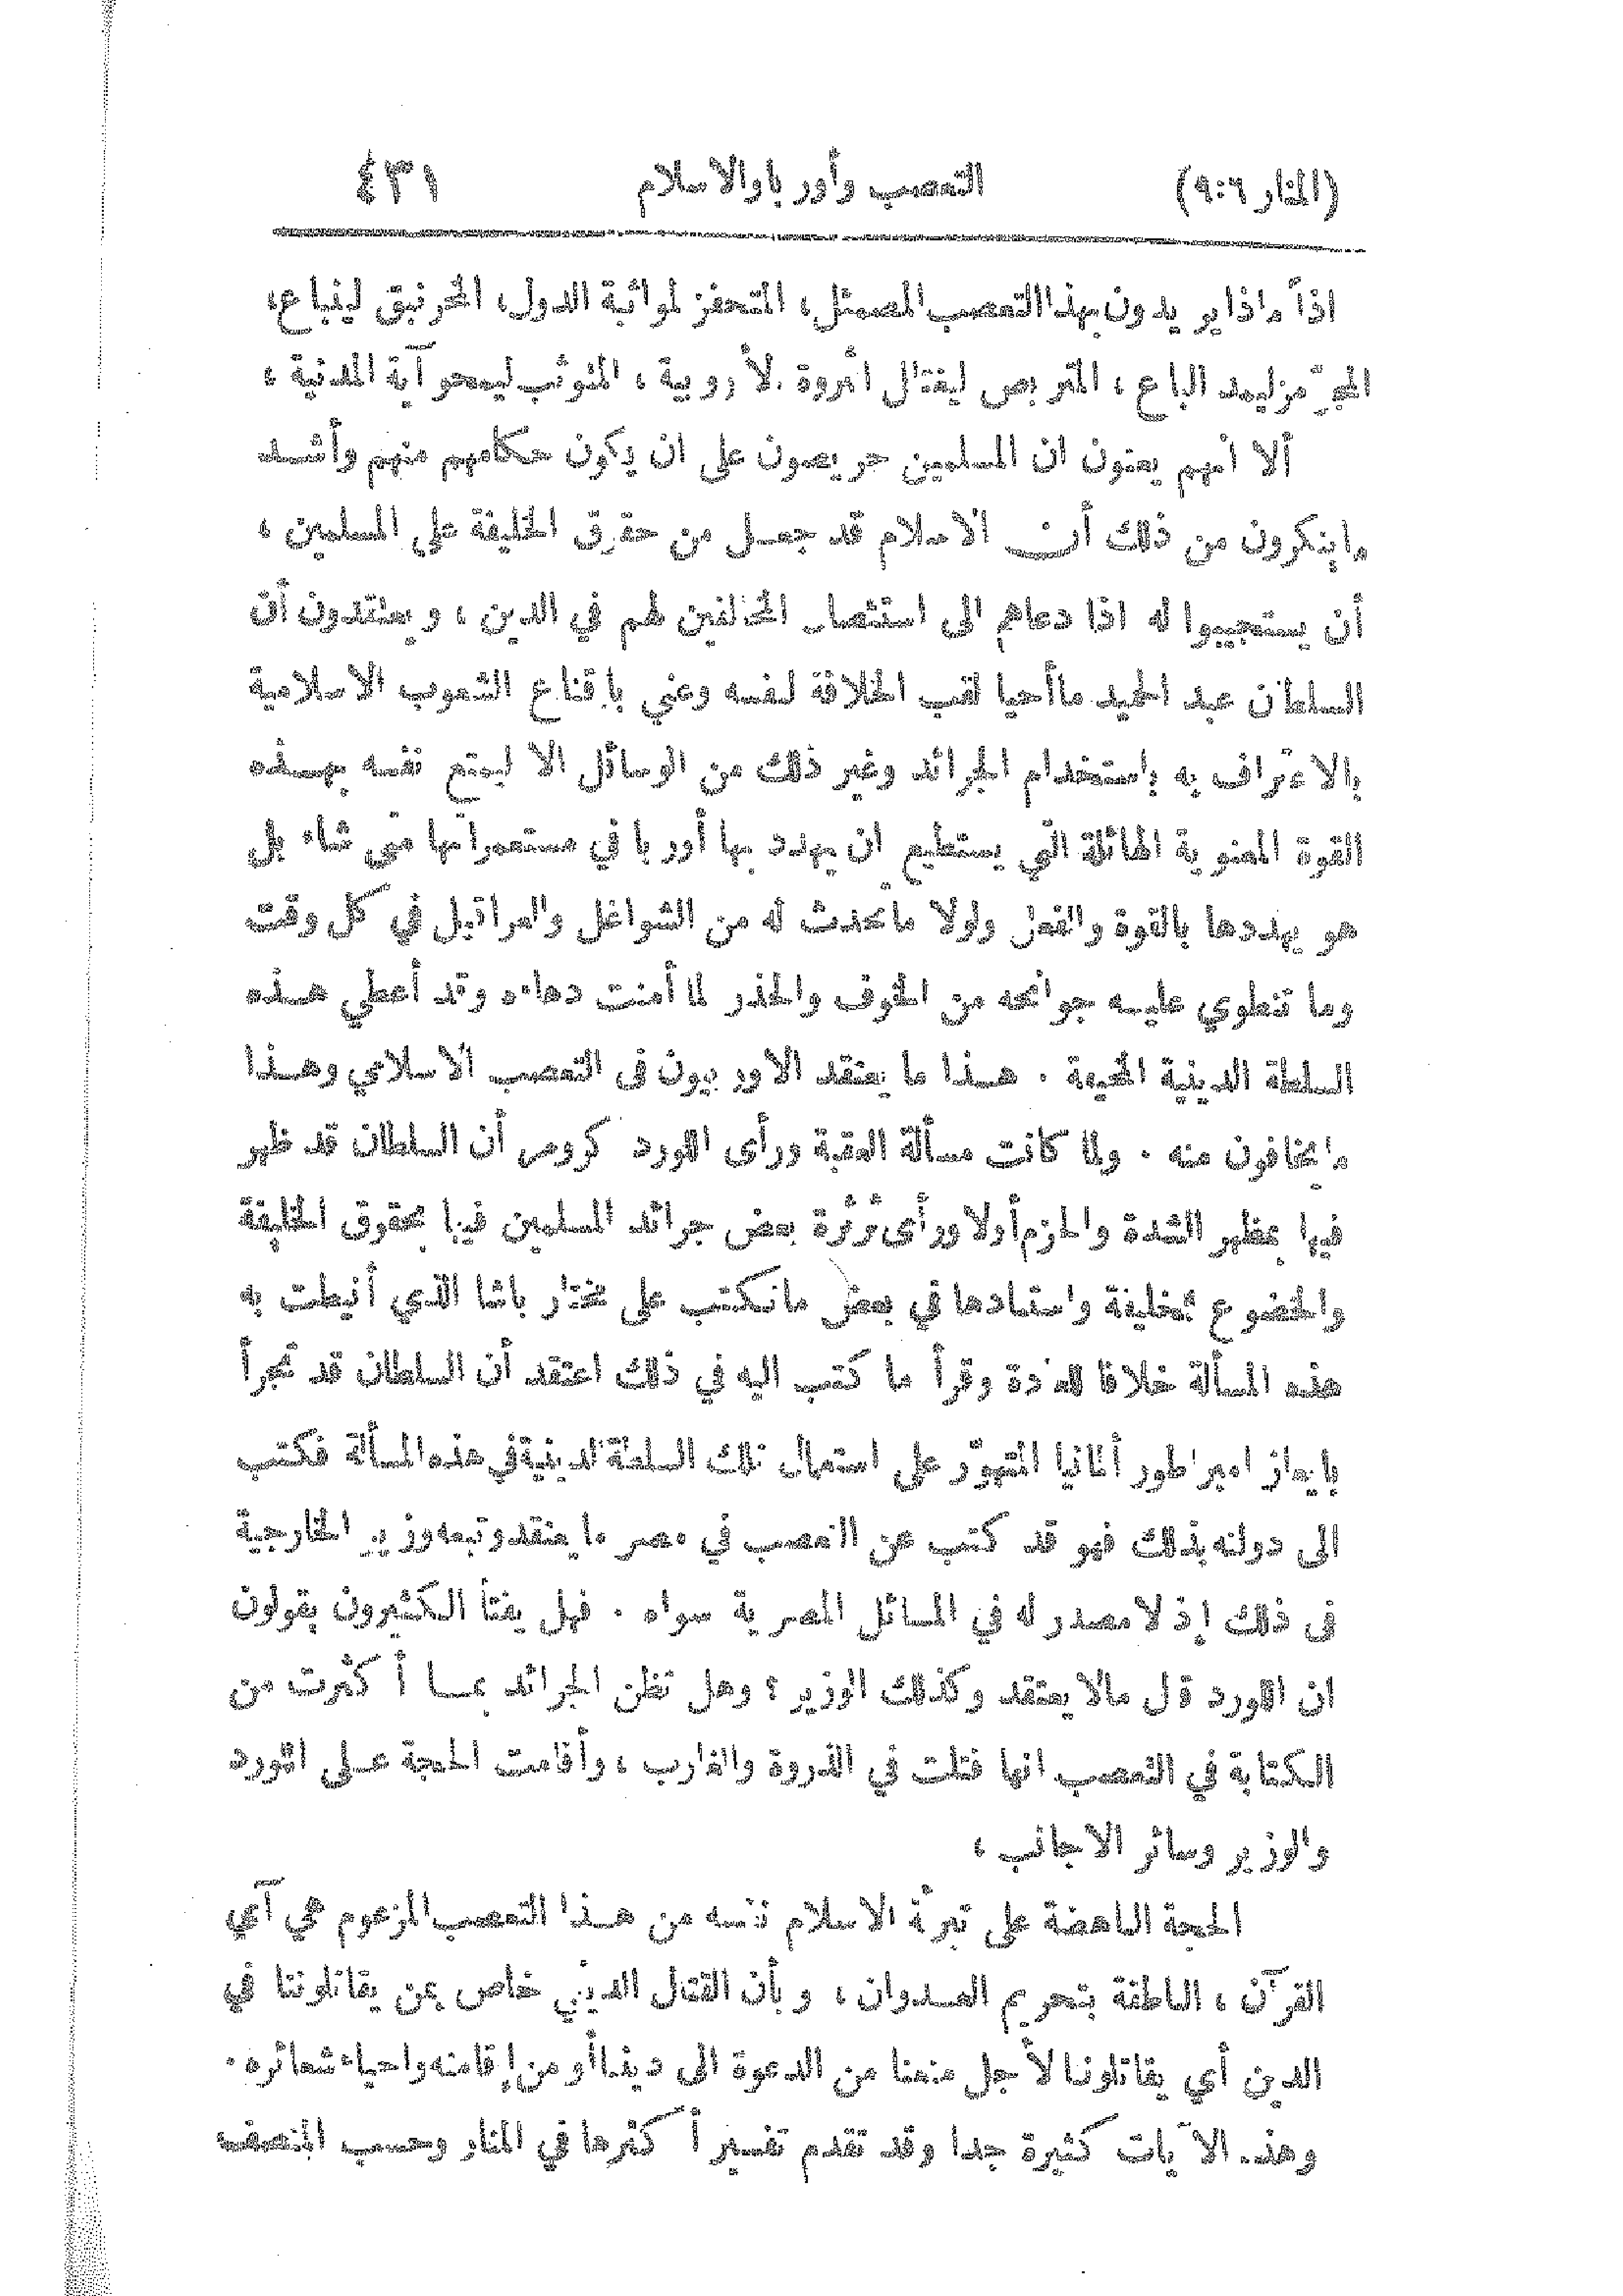 (المنار ٩:٦) التعصب وأوربا والاسلام ٤٣١
اذاً ماذا يريدون بهذا التعصب المصمئل، المتحفز لمواثبة الدول، المخرنبق لينباع،
المجرّمز ليمد الباع، المتربص ليغتال الثروة الأروبية، المتوثب ليمحو آية المدنية،
ألا انهم يعنون ان المسلمين حريصون على ان يكون حكامهم منهم وأشد
ما ينكرون من ذلك أن الاسلام قد جعل من حقوق الخليفة على المسلمين،
أن يستجيبوا له اذا دعاهم الى استئصال المخالفين لهم في الدين، ويعتقدون أن
السلطان عبد الحميد ما أحيا لقب الخلافة لنفسه وعني بإقناع الشعوب الاسلامية
بالاعتراف به باستخدام الجرائد وغير ذلك من الوسائل الا ليمتع نفسه بهذه
القوة المعنوية الهائلة التي يستطيع ان يهدد بها أوربا في مستعمراتها متى شاء بل
هو يهددها بالقوة والفعل ولولا ما تحدث له من الشواغل والعراقيل في كل وقت
وما تنطوي عليه جوانحه من الخوف والحذر لما أمنت دهاءه وقد أعطي هذه
السلطة الدينية المخيفة . هذا ما يعتقد الاوربيون فى التعصب الاسلامي وهذا
ما يخافون منه . ولما كانت مسألة العقبة ورأى اللورد كرومر أن السلطان قد ظهر
فيها بمظهر الشدة والحزم أولا ورأى ثرثرة بعض جرائد المسلمين فيها بحقوق الخليفة
والخضوع للخليفة واستنادها في بعض ما تكتب على مختار باشا الذي أنيطت به
هذه المسألة خلافا للعادة وقرأ ما كتب اليه في ذلك اعتقد أن السلطان قد تجرأ
بإيعاز امبراطور ألمانيا المتهوّر على استعمال تلك السلطة الدينية في هذه المسألة فكتب
الى دولته بذلك فهو قد كتب عن التعصب في مصر ما يعتقد وتبعه وزير الخارجية
فى ذلك إذ لا مصدر له في المسائل المصرية سواه . فهل يفتأ الكثيرون يقولون
ان اللورد قال مالا يعتقد وكذلك الوزير؟ وهل تظن الجرائد بما أكثرت من
الكتابة في التعصب انها فتلت في الذروة والغارب، وأقامت الحجة على اللورد
والوزير وسائر الاجانب،
الحجة الناهضة على تبرئة الاسلام نفسه من هذا التعصب المزعوم هي آي
القرآن، الناطقة بتحريم العدوان، وبأن القتال الديني خاص بمن يقاتلوننا في
الدين أي يقاتلونا لأجل منعنا من الدعوة الى ديننا أو من إقامته واحياء شعائره .
وهذه الآيات كثيرة جدا وقد تقدم تفسير أكثرها في المنار وحسب المنصف